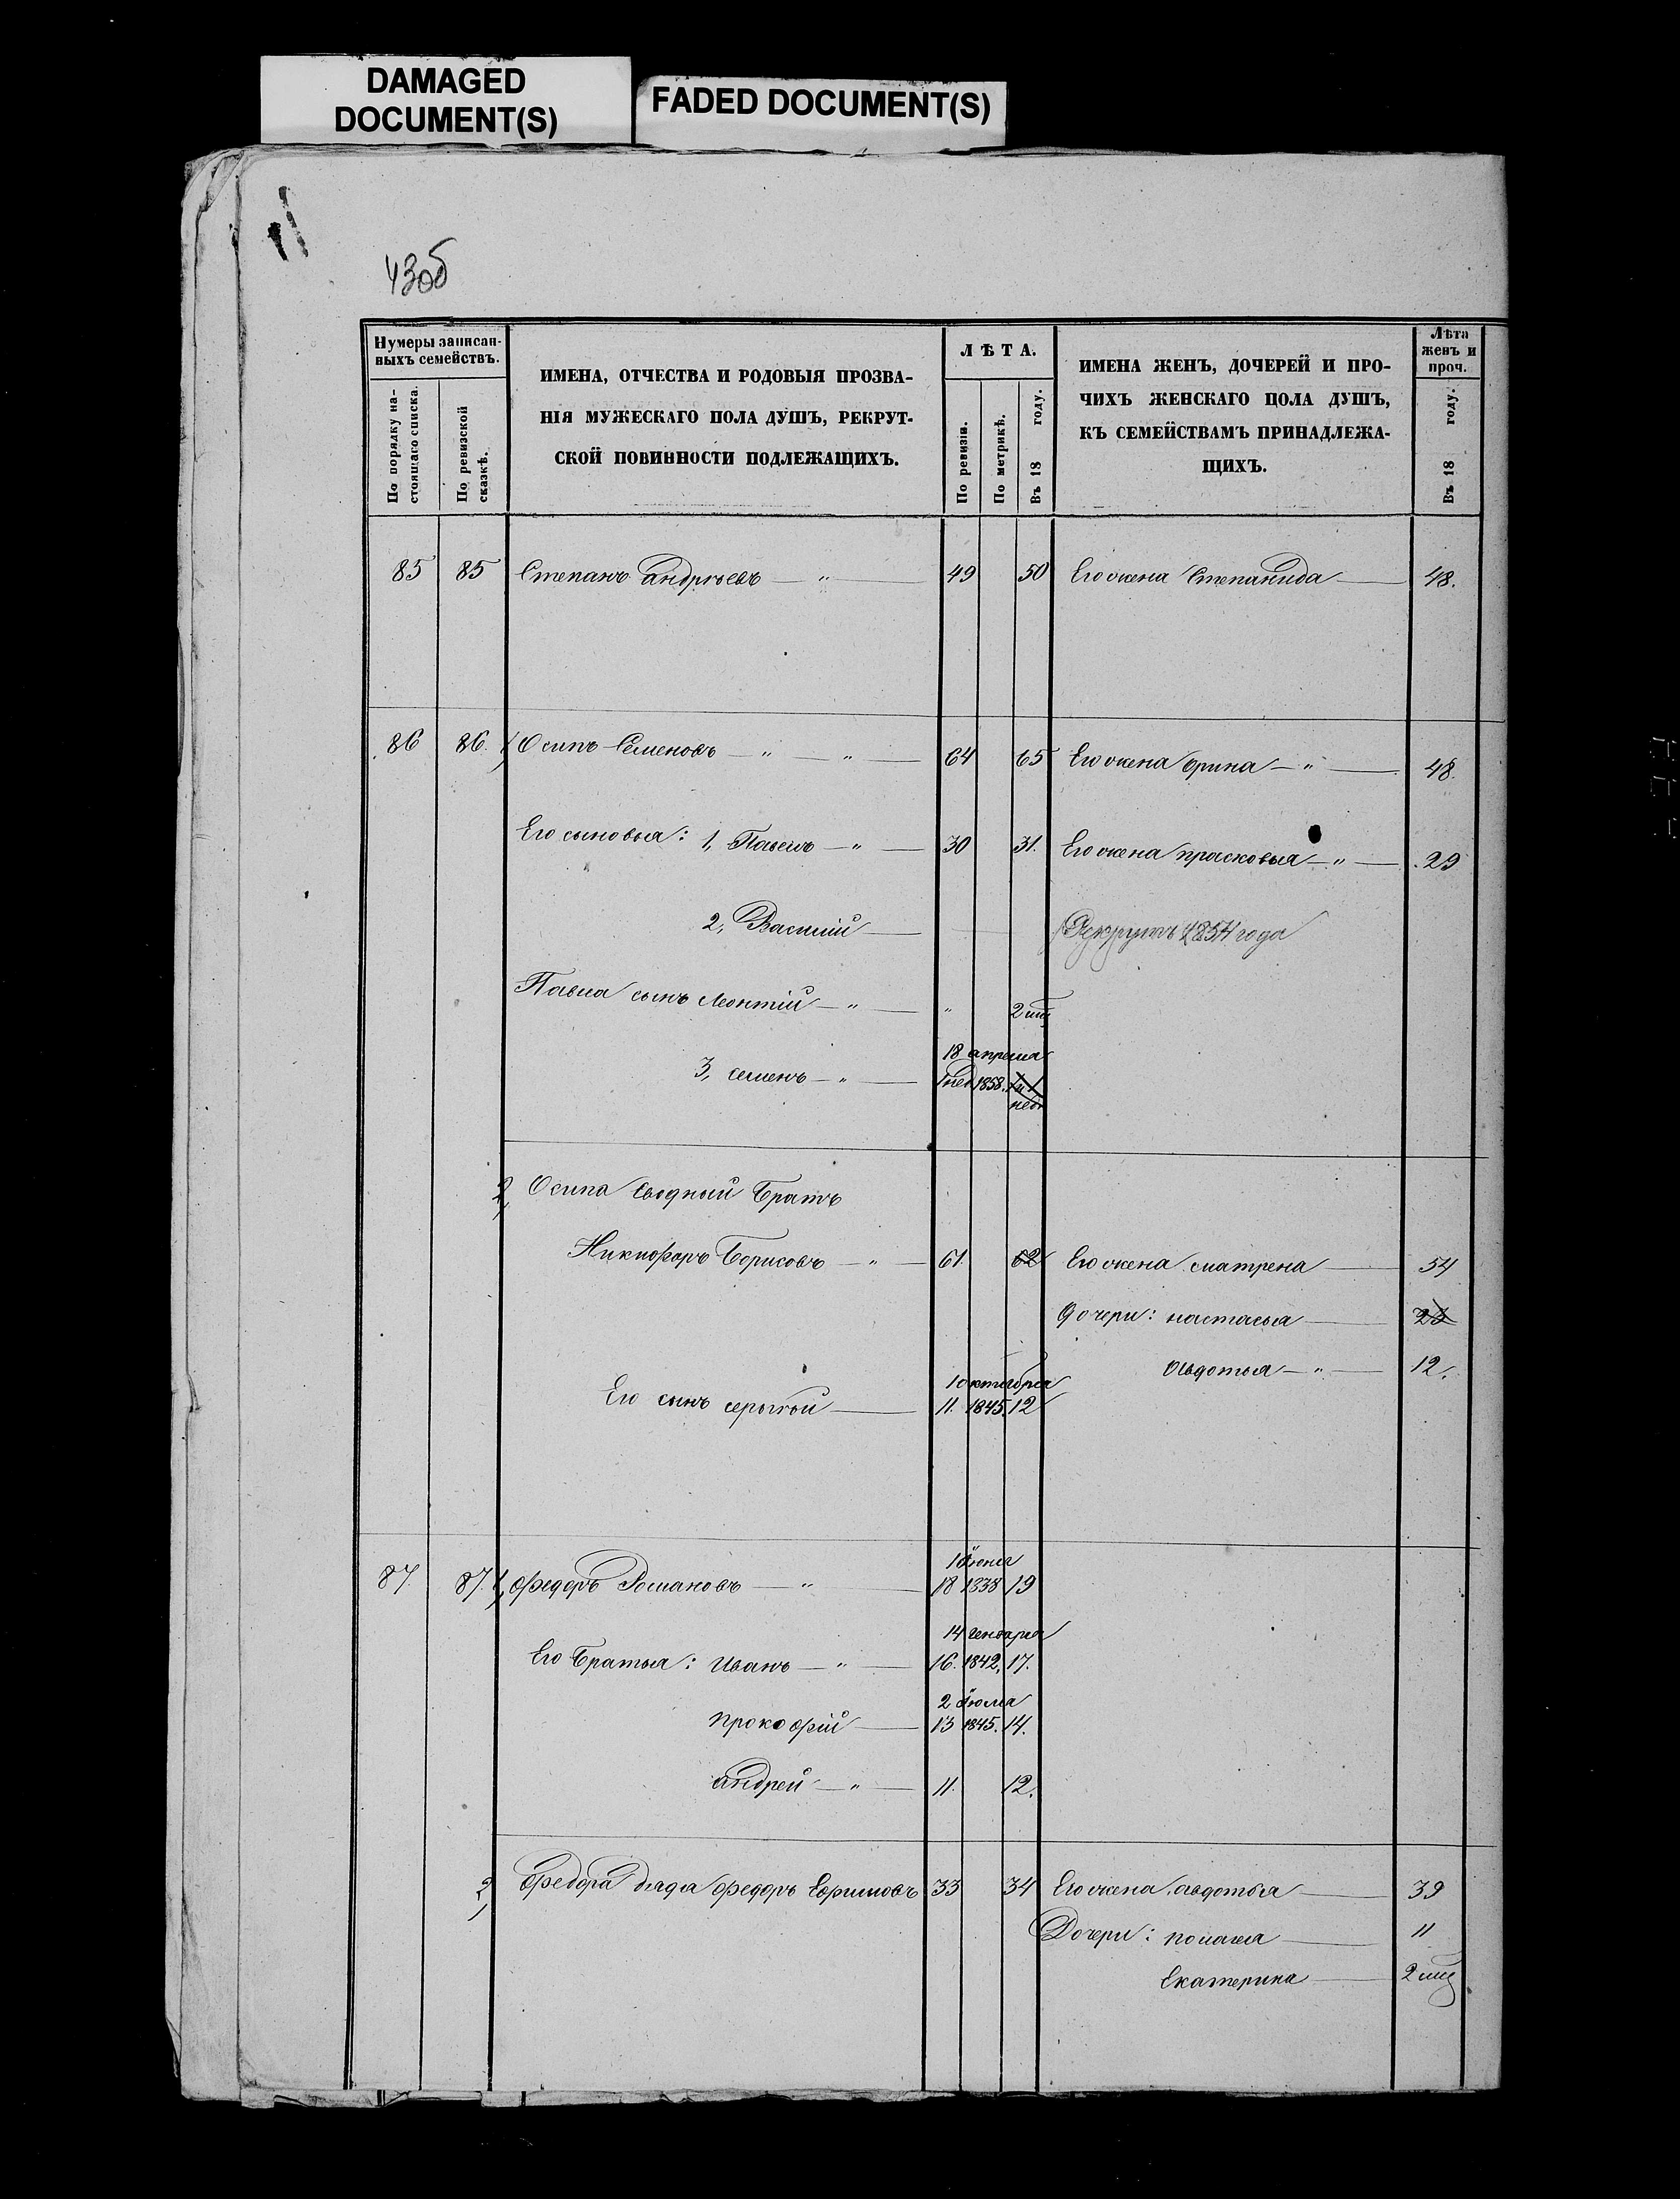 DAMAGED
DOCUMENT(S)
FADED DOCUMENT(S)
43об
Нумеры записан-
ныхъ семействъ.
По порядку на-
стоящаго списка.
По ревизской
сказкѣ.
ИМЕНА, ОТЧЕСТВА И РОДОВЫЯ ПРОЗВА-
НІЯ МУЖЕСКАГО ПОЛА ДУШЪ, РЕКРУТ-
СКОЙ ПОВИННОСТИ ПОДЛЕЖАЩИХЪ.
ЛѢТА.
По ревизіи.
По метрикѣ.
Въ 18 году.
ИМЕНА ЖЕНЪ, ДОЧЕРЕЙ И ПРО-
ЧИХЪ ЖЕНСКАГО ПОЛА ДУШЪ,
КЪ СЕМЕЙСТВАМЪ ПРИНАДЛЕЖА-
ЩИХЪ.
Лѣта
женъ и
проч.
Въ 18 году.
85 85 Степанъ Андрѣевъ — " — 49 50 Его жена Степанида — 48.
86 86. 1, Осипъ Семеновъ — " — " — 64 65 Его жена Орина — " — 48.
Его сыновья: 1, Павелъ — " — 30 31. Его жена Прасковья — " — 29
2, Василій — Рекрутъ 1854 года
Павла сынъ Леонтій — " — " 2 мц
18 апреля
3, Семенъ — " — 1 нед 1858.
нед
2, Осипа Сводный Братъ
Никифоръ Борисовъ — " — 61. 62 Его жена Матрена — 54
Дочери: Настасья — 23
Авдотья — " — 12.
1 октября
Его сынъ Сергѣй — 11. 1845. 12
1 Июня
87. 87. 1, Федоръ Романовъ — " — 18 1838 19
14 Генваря
Его Братья: Иванъ — " — 16. 1842. 17.
2 Июля
Прокофій — 13 1845. 14.
Андрей — " — 11. 12.
2, Федора дядя Федоръ Ефимовъ 33 34 Его жена Авдотья — 39
Дочери: Полагея — 11
Екатерина — 2 мц